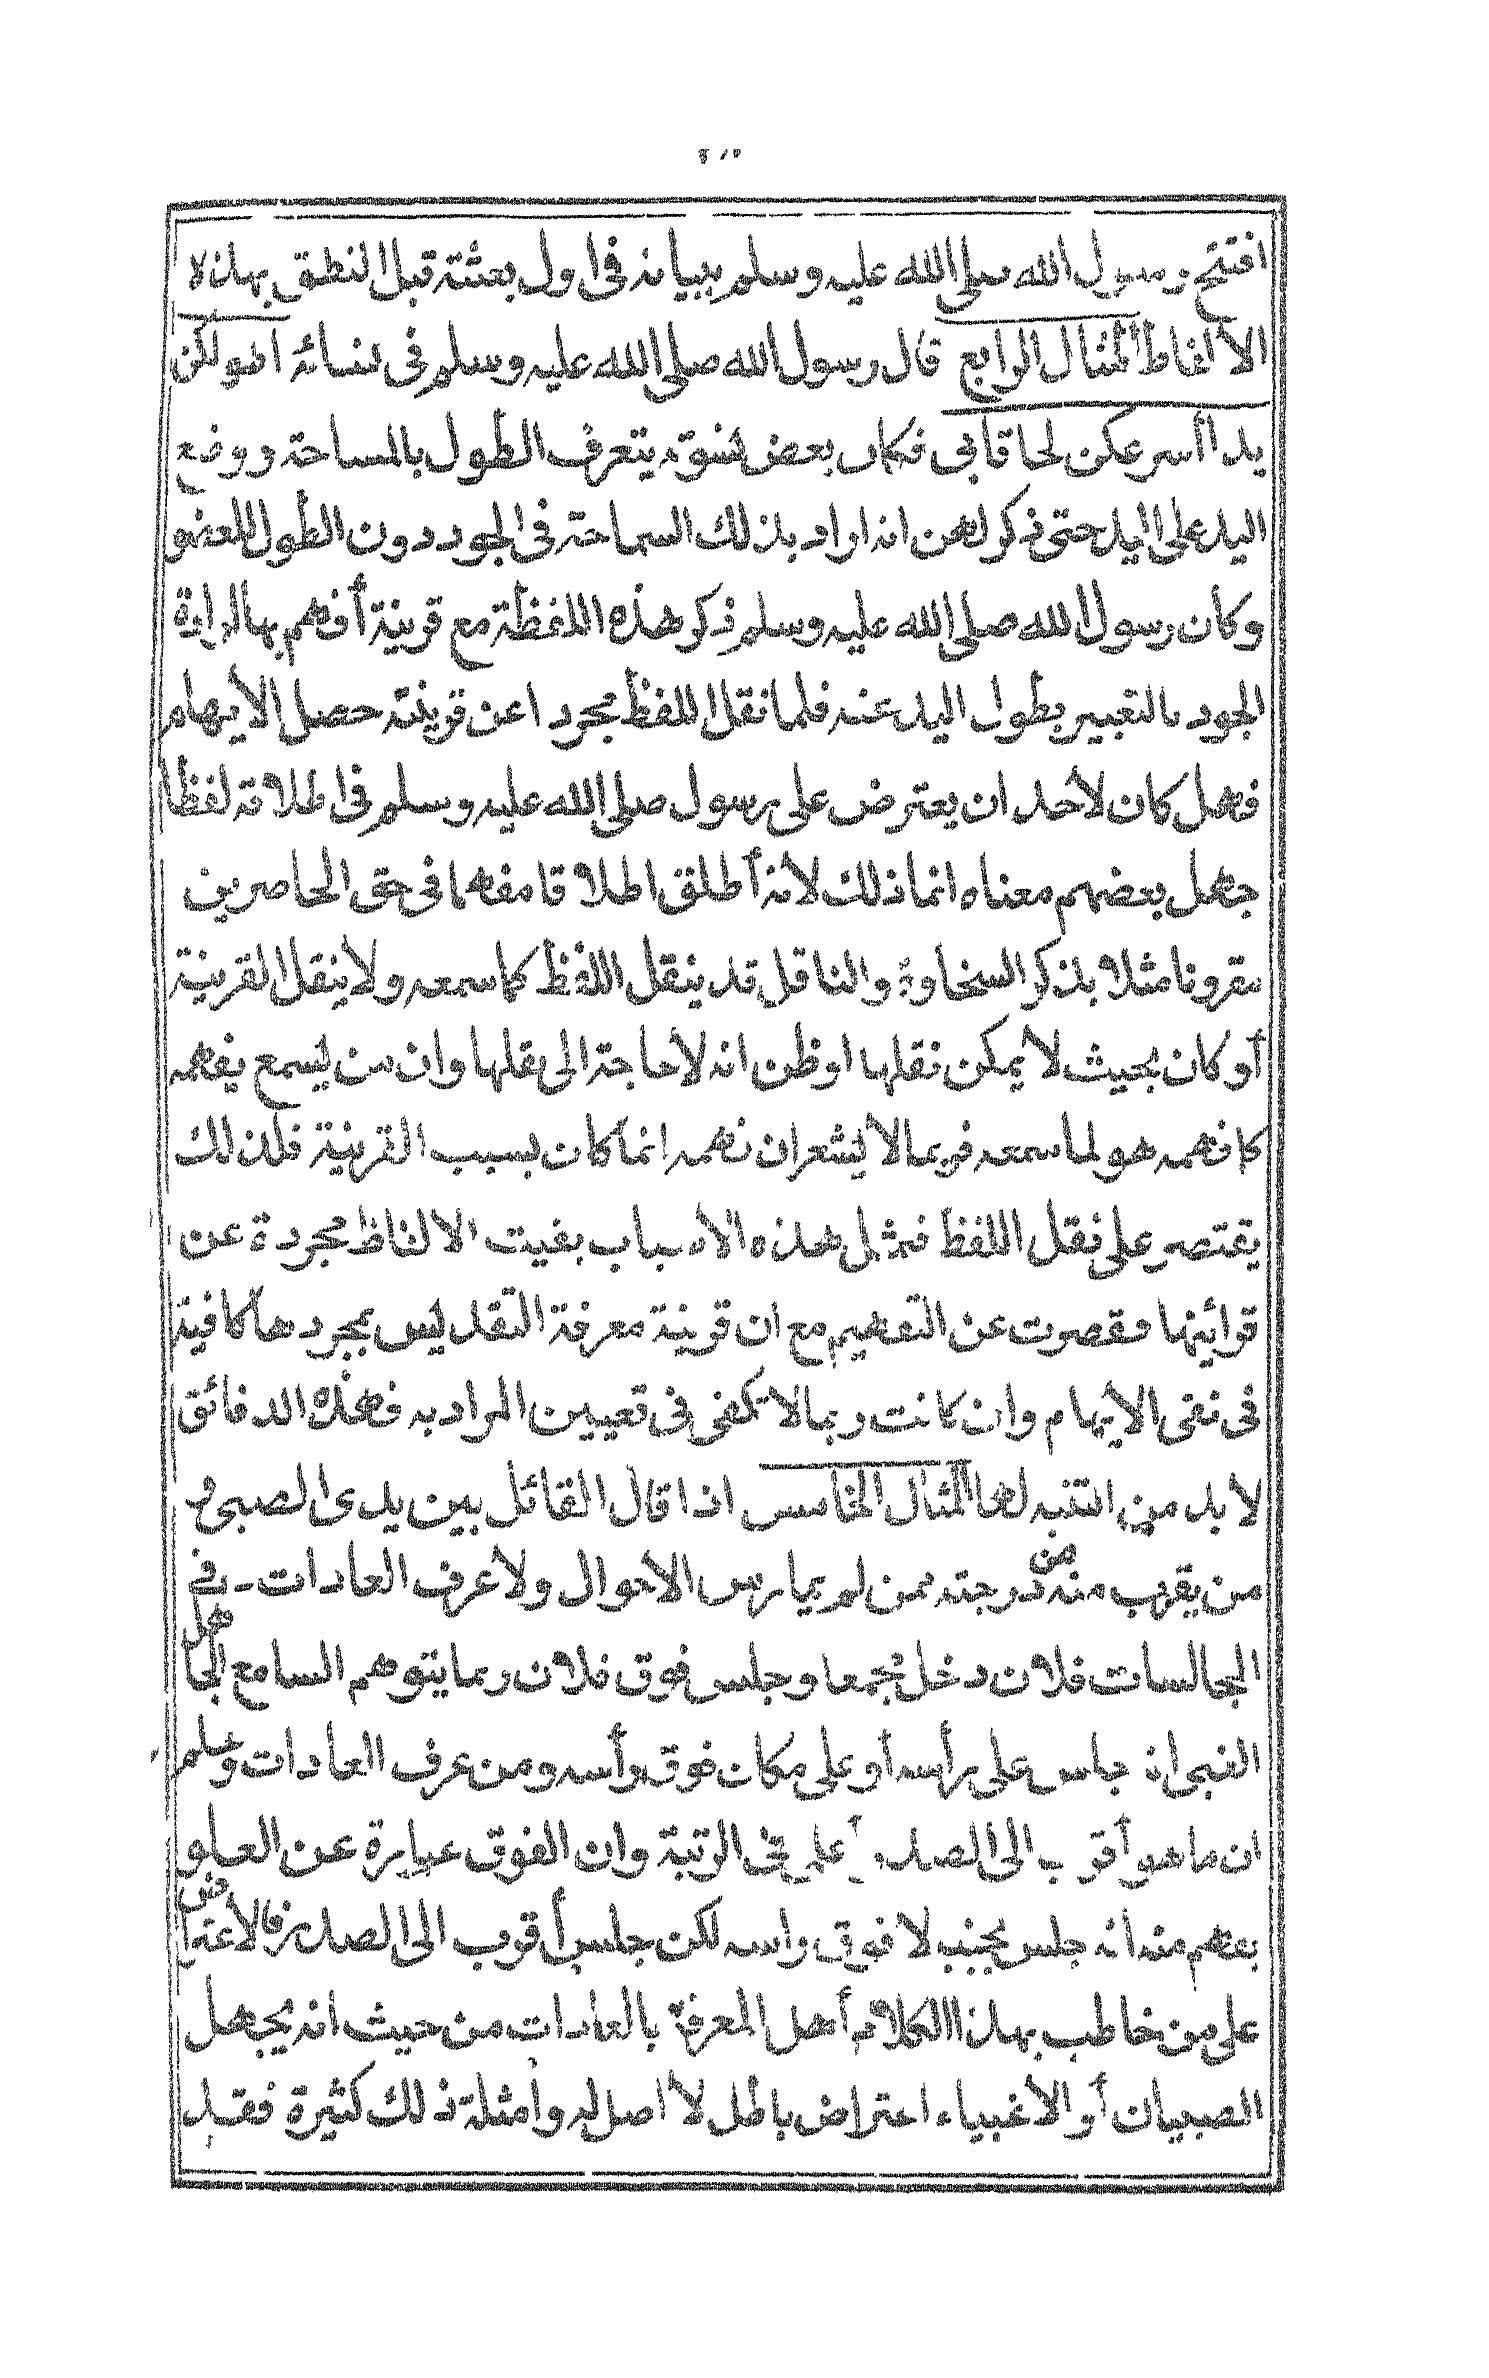 افتتح رسول الله صلى الله عليه وسلم ببيانه فى اول بعثته قبل النطق بهذه
الالفاظ المثال الرابع قال رسول الله صلى الله عليه وسلم فى نسائه اطولكن
يدا أسرعكن لحاقا بى فكان بعض نسوته يتعرف الطول بالمساحة ووضع
اليد على اليد حتى ذكر لهن انه اراد بذلك السماحة فى الجود دون الطول للعضو
وكان رسول الله صلى الله عليه وسلم ذكر هذه اللفظة مع قرينة أفهم بها ارادة
الجود بالتعبير بطول اليد عنه فلما نقل اللفظ مجردا عن قرينته حصل الايهام
فهل كان لأحد ان يعترض على رسول صلى الله عليه وسلم فى اطلاقه لفظا
جهل بعضهم معناه انما ذلك لأنه أطلق اطلاقا مفهما فى حق الحاضرين
مقرونا مثلا بذكر السخاوة والناقل قد ينقل اللفظ كما سمعه ولا ينقل القرينة
أو كان بحيث لا يمكن نقلها او ظن انه لا حاجة الى نقلها وان من يسمع يفهمه
كما فهمه هو لما سمعه فربما لا يشعر ان فهمه انما كان بسبب القرينة فلذلك
يقتصر على نقل اللفظ فبمثل هذه الاسباب بقيت الالفاظ مجردة عن
قرائنها فقصرت عن التفهيم مع ان قرينة معرفة التقديس بمجردها كافية
فى نفى الايهام وان كانت ربما لا تكفى فى تعيين المراد به فهذه الدقائق
لا بد من التنبه لها المثال الخامس اذا قال القائل بين يدى الصبى و
من يقرب منه من درجته ممن لم يمارس الاحوال ولا عرف العادات فى
المجالسات فلان دخل مجمعا وجلس فوق فلان ربما يتوهم السامع الجاهل
الغبى انه جلس على رأسه أو على مكان فوق رأسه ومن عرف العادات وعلم
ان ما هو أقرب الى الصدر أعلى فى الرتبة وان الفوق عبارة عن العلو
يفهم منه أنه جلس بجنبه لا فوق راسه لكن جلس أقرب الى الصدر فالاعتراض
على من خاطب بهذا الكلام أهل المعرفة بالعادات من حيث انه يجهل
الصبيان أو الأغبياء اعتراض باطل لا اصل له وامثلة ذلك كثيرة فقد